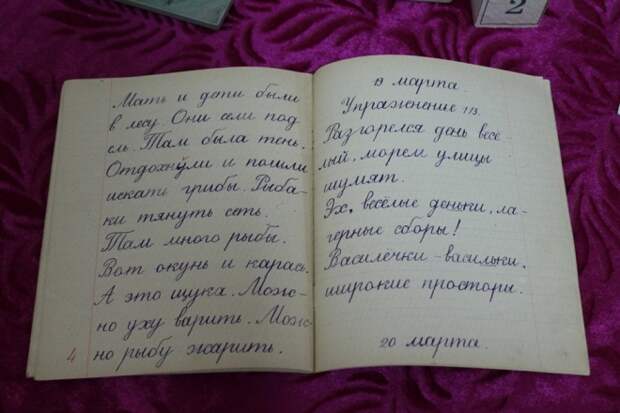 Мать и дети были
в лесу. Они сели под
ель. Там была тень.
Отдохнули и пошли
искать грибы. Рыба-
ки тянуть сеть.
Там много рыбы.
Вот окунь и карась.
А это щука. Мож-
но уху варить. Мож-
но рыбу жарить.
4
19 марта.
Упражнение 113.
Разгорелся день весё-
лый, морем улицы
шумят.
Эх, весёлые деньки, ла-
герные сборы!
Василёчки - васильки,
широкие просторы.
20 марта.
2